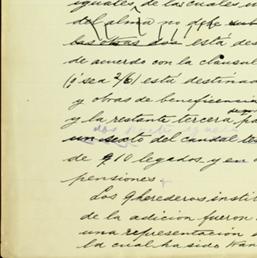 iguales de las cuales u
del alma no debe sub
las otras dos está des
de acuerdo con la clausul
(ó sea 2/6) está destinad
y obras de beneficencia
y la restante tercera, pa
un sexto del caudal ter
de 910 legados, y en
pensiones.
Los 9 herederos instit
de la adicion fueron
una representación
la cual ha sido